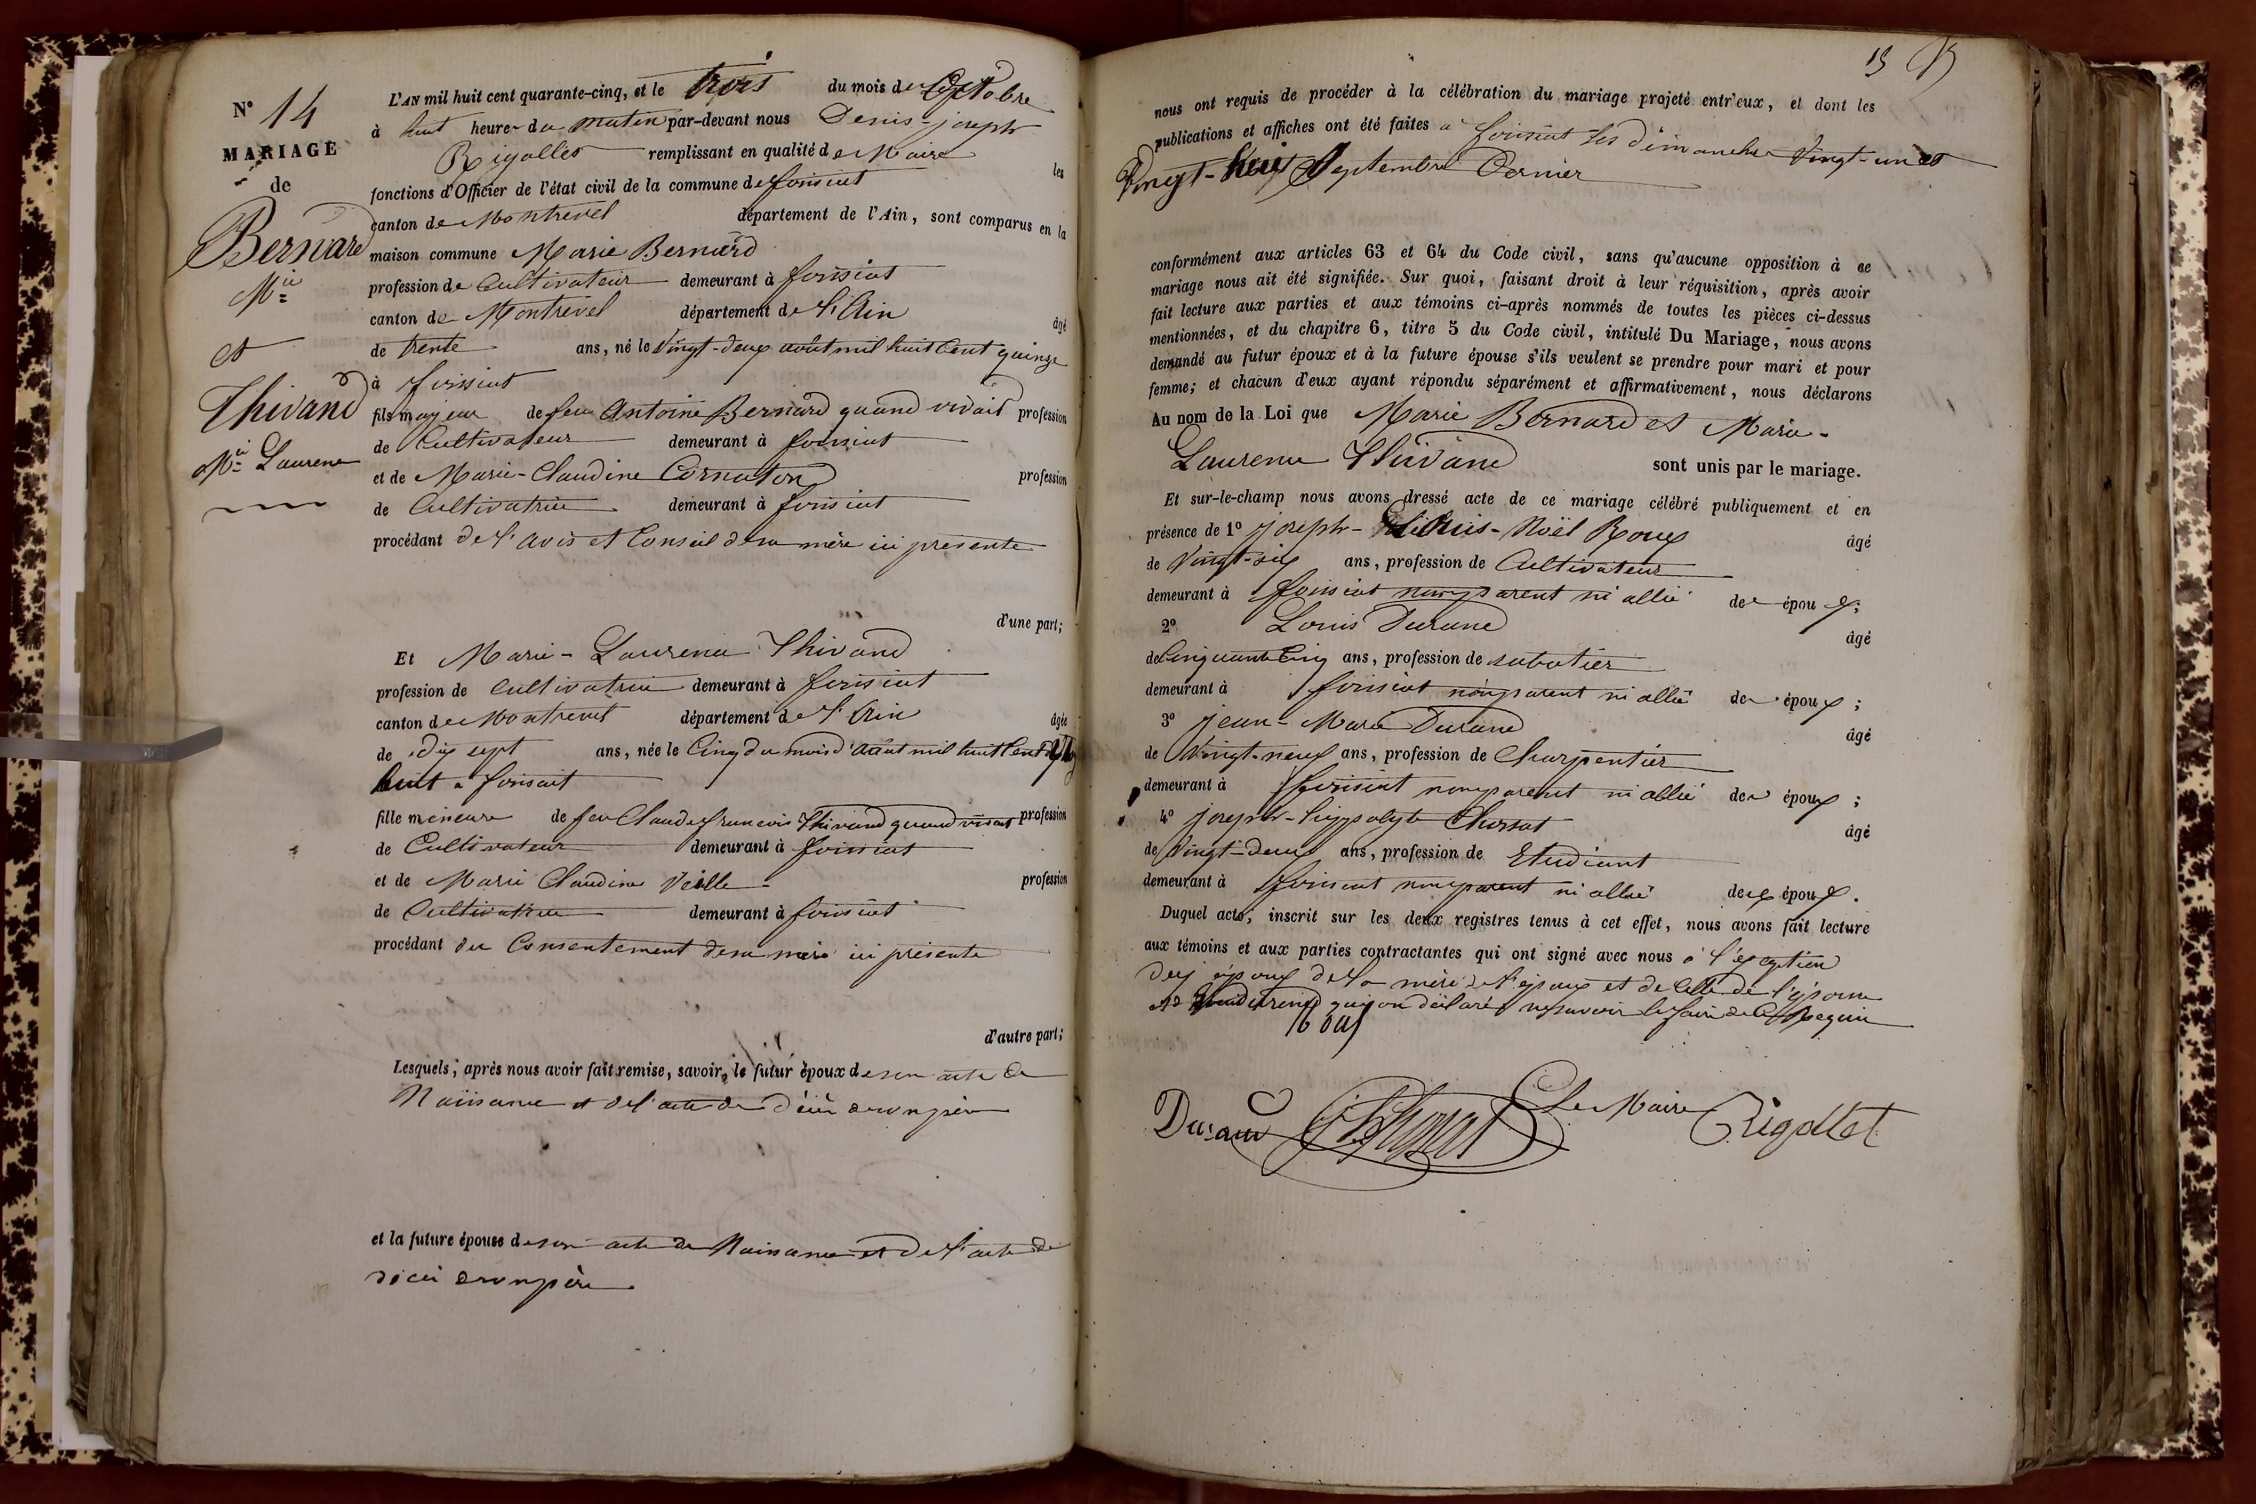 N° 14
MARIAGE
de
Bernard
Mie
et
Thivand
Mie Laurence
L'AN mil huit cent quarante-cinq, et le trois du mois de Octobre
à huit heures du matin par-devant nous Denis-joseph
Rigollet remplissant en qualité de Maire les
fonctions d'Officier de l'état civil de la commune de foissiat
canton de Montrevel département de l'Ain, sont comparus en la
maison commune Marie Bernard
profession de Cultivateur demeurant à foissiat
canton de Montrevel département de l'Ain âgé
de trente ans, né le Vingt-deux août mil huit Cent quinze
à foissiat
fils majeur de feu Antoine Bernard quand vivait profession
de Cultivateur demeurant à foissiat
et de Marie-Claudine Cornaton profession
de Cultivatrice demeurant à foissiat
procédant de l'avis et Conseil de sa mère ici présente
d'une part;
Et Marie-Laurence Thivand
profession de cultivatrice demeurant à foissiat
canton de Montrevel département de l'Ain âgée
de dix sept ans, née le Cinq du mois d'août mil huit Cent vingt
huit à foissiat
fille mineure de feu Claude francois Thivand quand vivait profession
de Cultivateur demeurant à foissiat
et de Marie Claudine Veille profession
de Cultivatrice demeurant à foissiat
procédant du Consentement de sa mère ici présente
d'autre part;
Lesquels, après nous avoir fait remise, savoir, le futur époux de son acte de
Naissance et de l'acte de décès de son père
et la future épouse de son acte de Naissance et de l'acte de
décès de son père
15
nous ont requis de procéder à la célébration du mariage projeté entr'eux, et dont les
publications et affiches ont été faites à foissiat les dimanches Vingt-un et
Vingt-huit Septembre Dernier
conformément aux articles 63 et 64 du Code civil, sans qu'aucune opposition à ce
mariage nous ait été signifiée. Sur quoi, faisant droit à leur réquisition, après avoir
fait lecture aux parties et aux témoins ci-après nommés de toutes les pièces ci-dessus
mentionnées, et du chapitre 6, titre 5 du Code civil, intitulé Du Mariage, nous avons
demandé au futur époux et à la future épouse s'ils veulent se prendre pour mari et pour
femme; et chacun d'eux ayant répondu séparément et affirmativement, nous déclarons
Au nom de la Loi que Marie Bernard et Marie-
Laurence Thivand sont unis par le mariage.
Et sur-le-champ nous avons dressé acte de ce mariage célébré publiquement et en
présence de 1° joseph-Louis-Noël Roux âgé
de Vingt-six ans, profession de Cultivateur
demeurant à foissiat non parent ni allié des époux;
2° Louis Durand âgé
de Cinquante Cinq ans, profession de sabotier
demeurant à foissiat non parent ni allié des époux;
3° jean-Marie Durand âgé
de Vingt-neuf ans, profession de Charpentier
demeurant à foissiat non parent ni allié des époux;
4° joseph-hippolyte Chossat âgé
de Vingt-Deux ans, profession de Etudiant
demeurant à foissiat non parent ni allié des époux.
Duquel acte, inscrit sur les deux registres tenus à cet effet, nous avons fait lecture
aux témoins et aux parties contractantes qui ont signé avec nous à l'exception
des époux de la mère de l'époux et de Celle de l'épouse
et qui on déclarés ne savoir le faire de Ce Requis
Durand Chossat Le Maire Rigollet